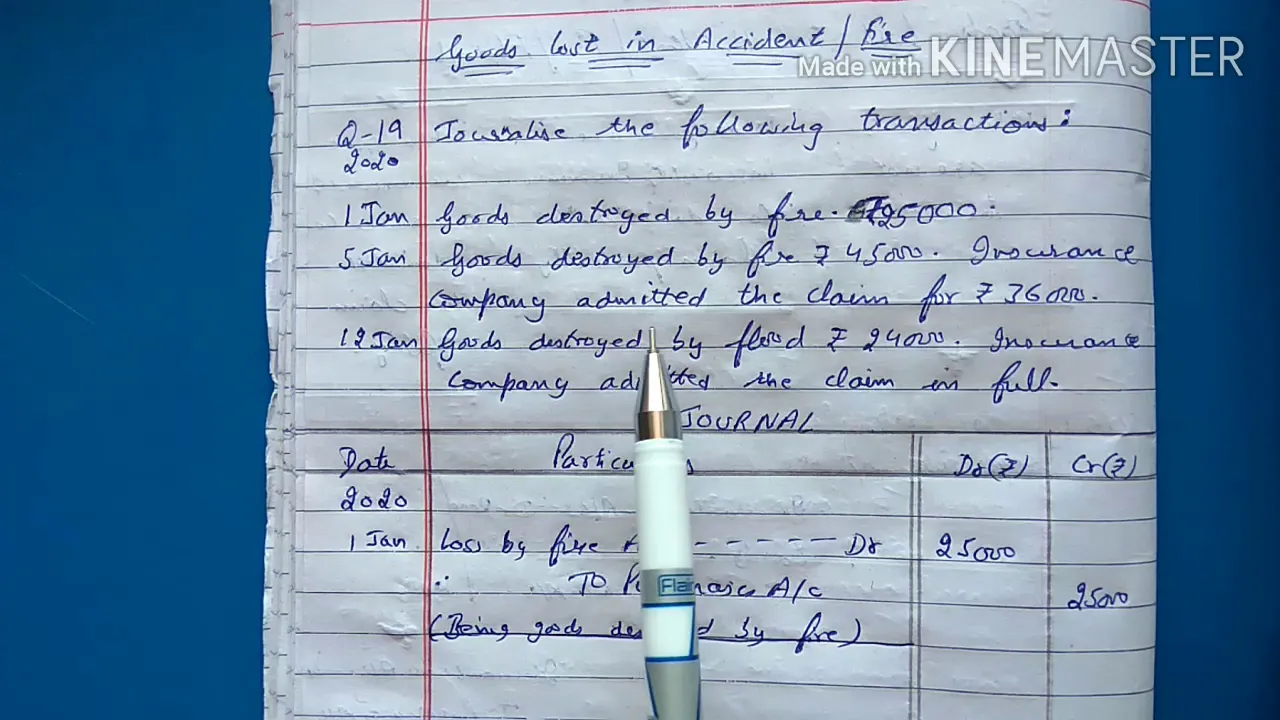 Goods Lost in Accident/Fire
Made with KINEMASTER
Q-19 Journalise the following transactions:
2020
1 Jan Goods destroyed by fire. ₹25000.
5 Jan Goods destroyed by fire ₹ 45000. Insurance
Company admitted the claim for ₹ 36000.
12 Jan Goods destroyed by flood ₹ 24000. Insurance
Company admitted the claim in full.
JOURNAL
Date Dr(₹) Cr(₹)
2020
1 Jan Loss by fire ------ Dr 25000
To A/c 25000
(Being goods by fire)
Flair